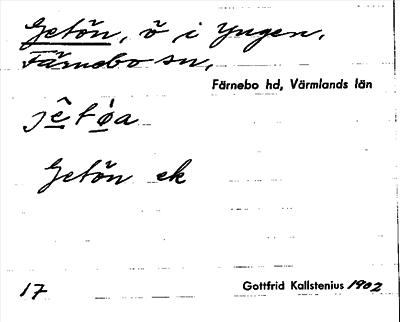 Getön, ö i Yngen,
Färnebo sn,
Färnebo hd, Värmlands län
jêtǿa
Getön ek
17
Gottfrid Kallstenius 1902